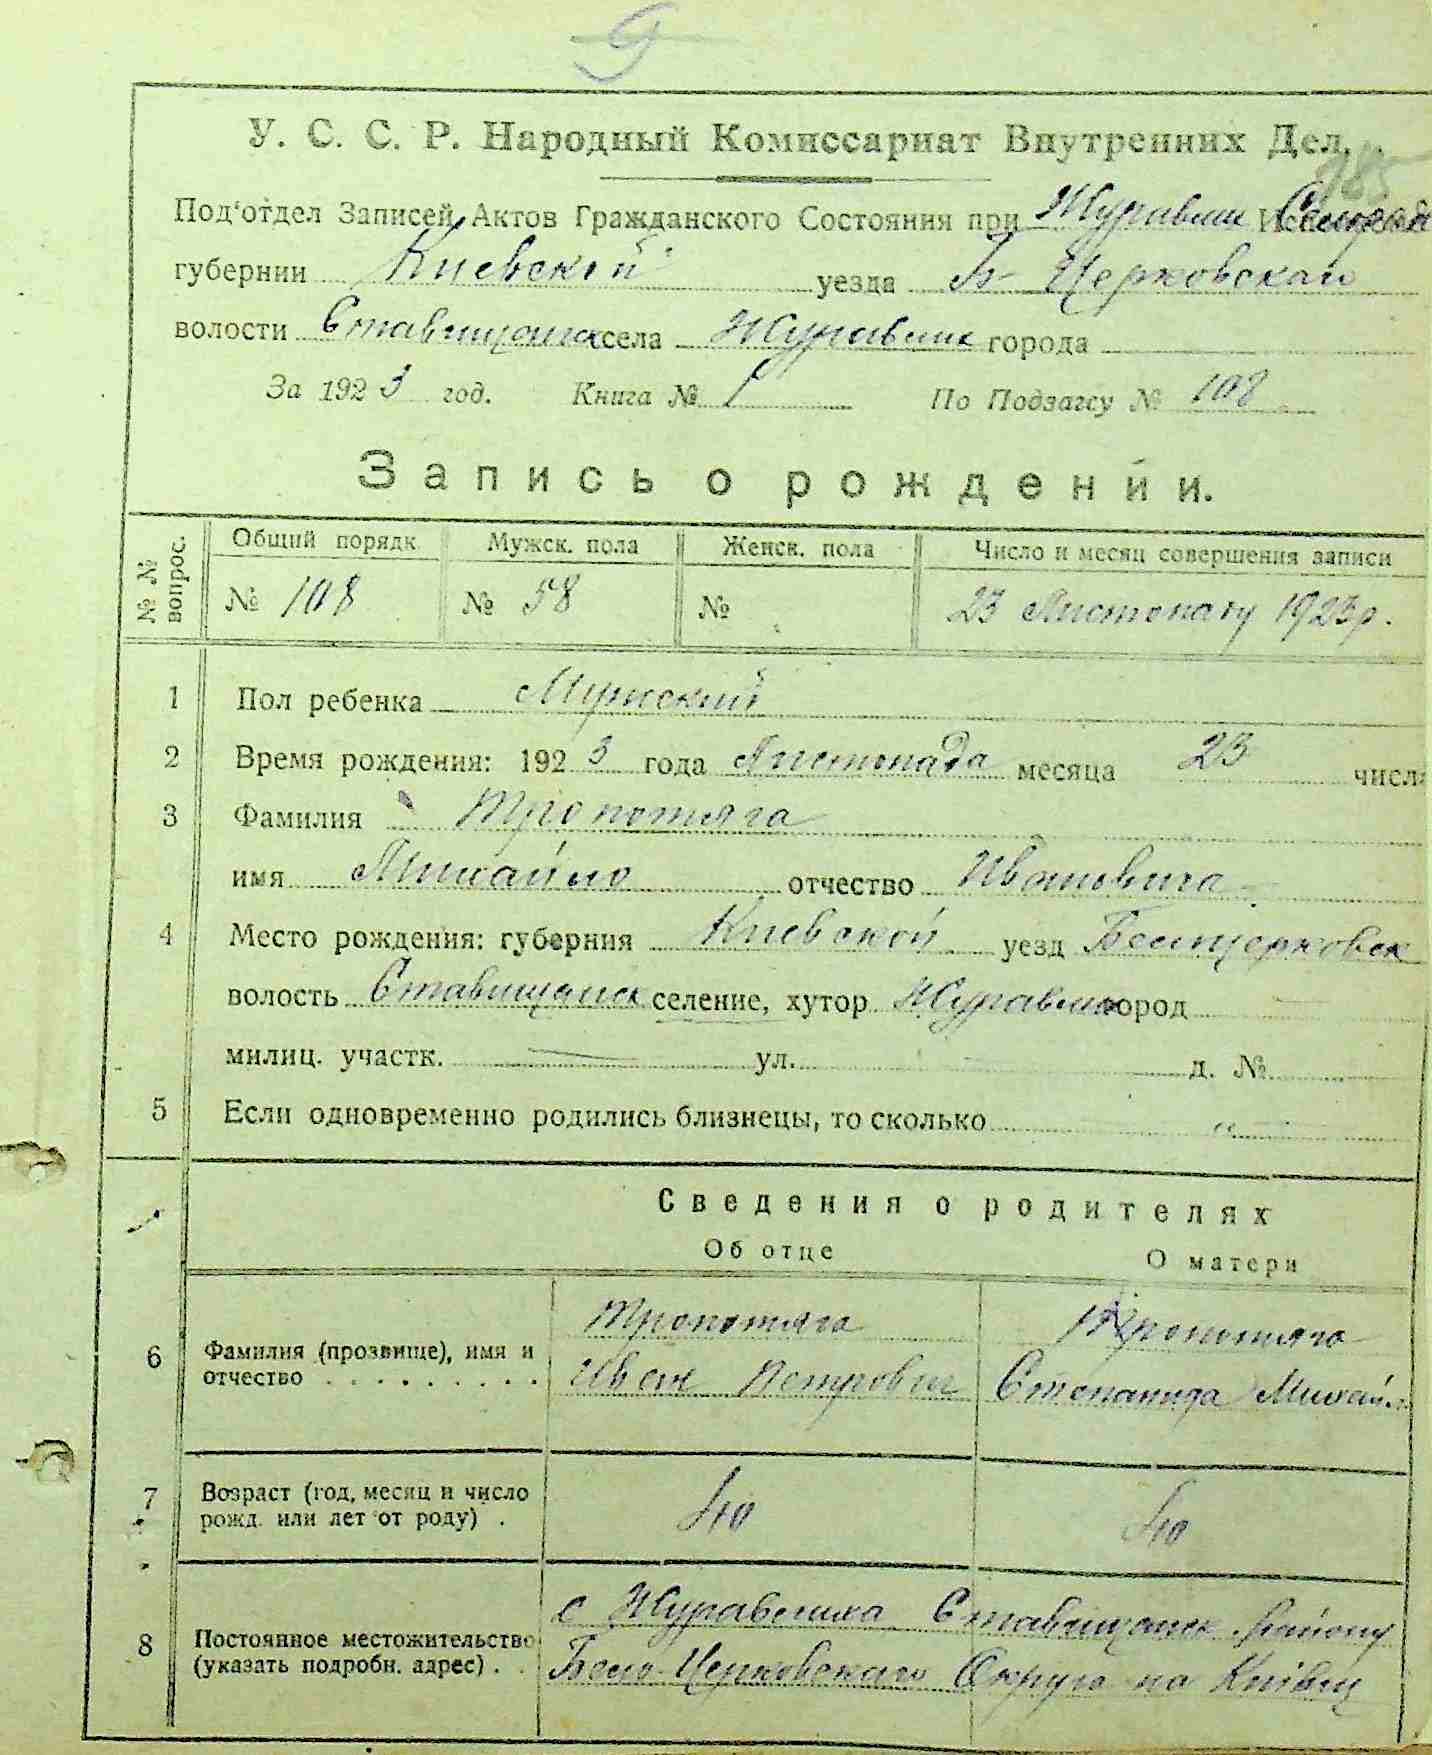 185
У. С. С. Р. Народный Комиссариат Внутренних Дел.
Под'отдел Записей Актов Гражданского Состояния при Журавлих
губернии Киевской уезда Б Церковскаго
волости Ставищанск села Журавлих города
За 1923 год. Книга № 1 По Подзагсу № 108
Запись о рождении.
№ № вопрос. Общий порядк. Мужск. пола Женск. пола Число и месяц совершения записи
№ 108 № 58 № 23 Листопаду 1923 р.
1 Пол ребенка Мужский
2 Время рождения: 1923 года Листопада месяца 23 числа
3 Фамилия Тропотяга
имя Михайло отчество Ивановича
4 Место рождения: губерния Киевской уезд Белоцерковск
волость Ставищанск селение, хутор Журавлих город
милиц. участк. — ул. д. №
5 Если одновременно родились близнецы, то сколько "
Сведения о родителях
Об отце О матери
Тропотяга Тропотяга
6 Фамилия (прозвище), имя и отчество Иван Петрович Степанида Михай.
7 Возраст (год, месяц и число рожд. или лет от роду) . 40 40
с Журавлиха Ставищанск. району
8 Постоянное местожительство (указать подробн. адрес) . . Бело-Церковскаго Округа на Київщ